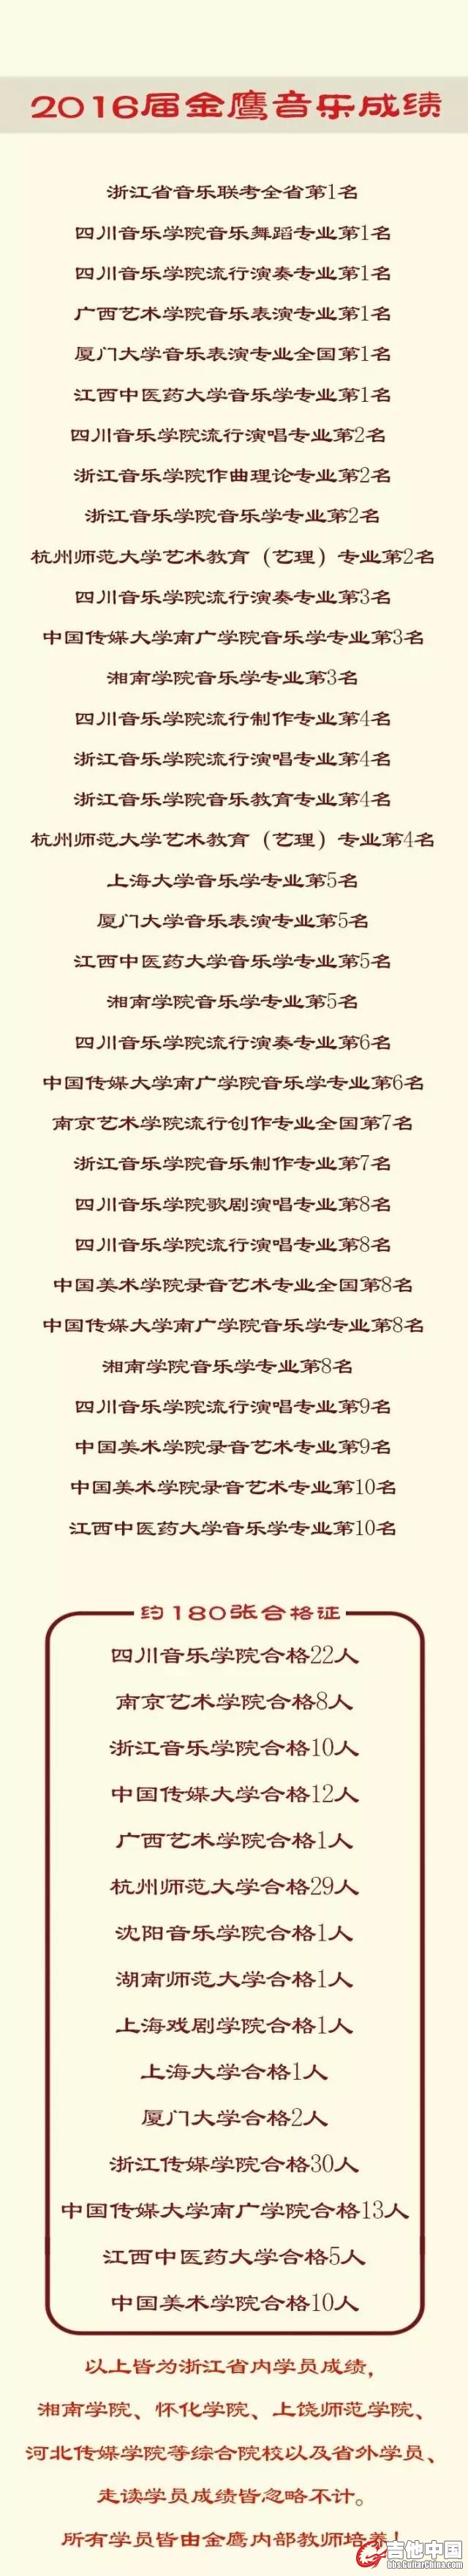 2016届金鹰音乐成绩
浙江省音乐联考全省第1名
四川音乐学院音乐舞蹈专业第1名
四川音乐学院流行演奏专业第1名
广西艺术学院音乐表演专业第1名
厦门大学音乐表演专业全国第1名
江西中医药大学音乐学专业第1名
四川音乐学院流行演唱专业第2名
浙江音乐学院作曲理论专业第2名
浙江音乐学院音乐学专业第2名
杭州师范大学艺术教育（艺理）专业第2名
四川音乐学院流行演奏专业第3名
中国传媒大学南广学院音乐学专业第3名
湘南学院音乐学专业第3名
四川音乐学院流行制作专业第4名
浙江音乐学院流行演唱专业第4名
浙江音乐学院音乐教育专业第4名
杭州师范大学艺术教育（艺理）专业第4名
上海大学音乐学专业第5名
厦门大学音乐表演专业第5名
江西中医药大学音乐学专业第5名
湘南学院音乐学专业第5名
四川音乐学院流行演奏专业第6名
中国传媒大学南广学院音乐学专业第6名
南京艺术学院流行创作专业全国第7名
浙江音乐学院音乐制作专业第7名
四川音乐学院歌剧演唱专业第8名
四川音乐学院流行演唱专业第8名
中国美术学院录音艺术专业全国第8名
中国传媒大学南广学院音乐学专业第8名
湘南学院音乐学专业第8名
四川音乐学院流行演唱专业第9名
中国美术学院录音艺术专业第9名
中国美术学院录音艺术专业第10名
江西中医药大学音乐学专业第10名
约180张合格证
四川音乐学院合格22人
南京艺术学院合格8人
浙江音乐学院合格10人
中国传媒大学合格12人
广西艺术学院合格1人
杭州师范大学合格29人
沈阳音乐学院合格1人
湖南师范大学合格1人
上海戏剧学院合格1人
上海大学合格1人
厦门大学合格2人
浙江传媒学院合格30人
中国传媒大学南广学院合格13人
江西中医药大学合格5人
中国美术学院合格10人
以上皆为浙江省内学员成绩，
湘南学院、怀化学院、上饶师范学院、
河北传媒学院等综合院校以及省外学员、
走读学员成绩皆忽略不计。
所有学员皆由金鹰内部教师培养！
吉他中国
bbs.GuitarChina.com